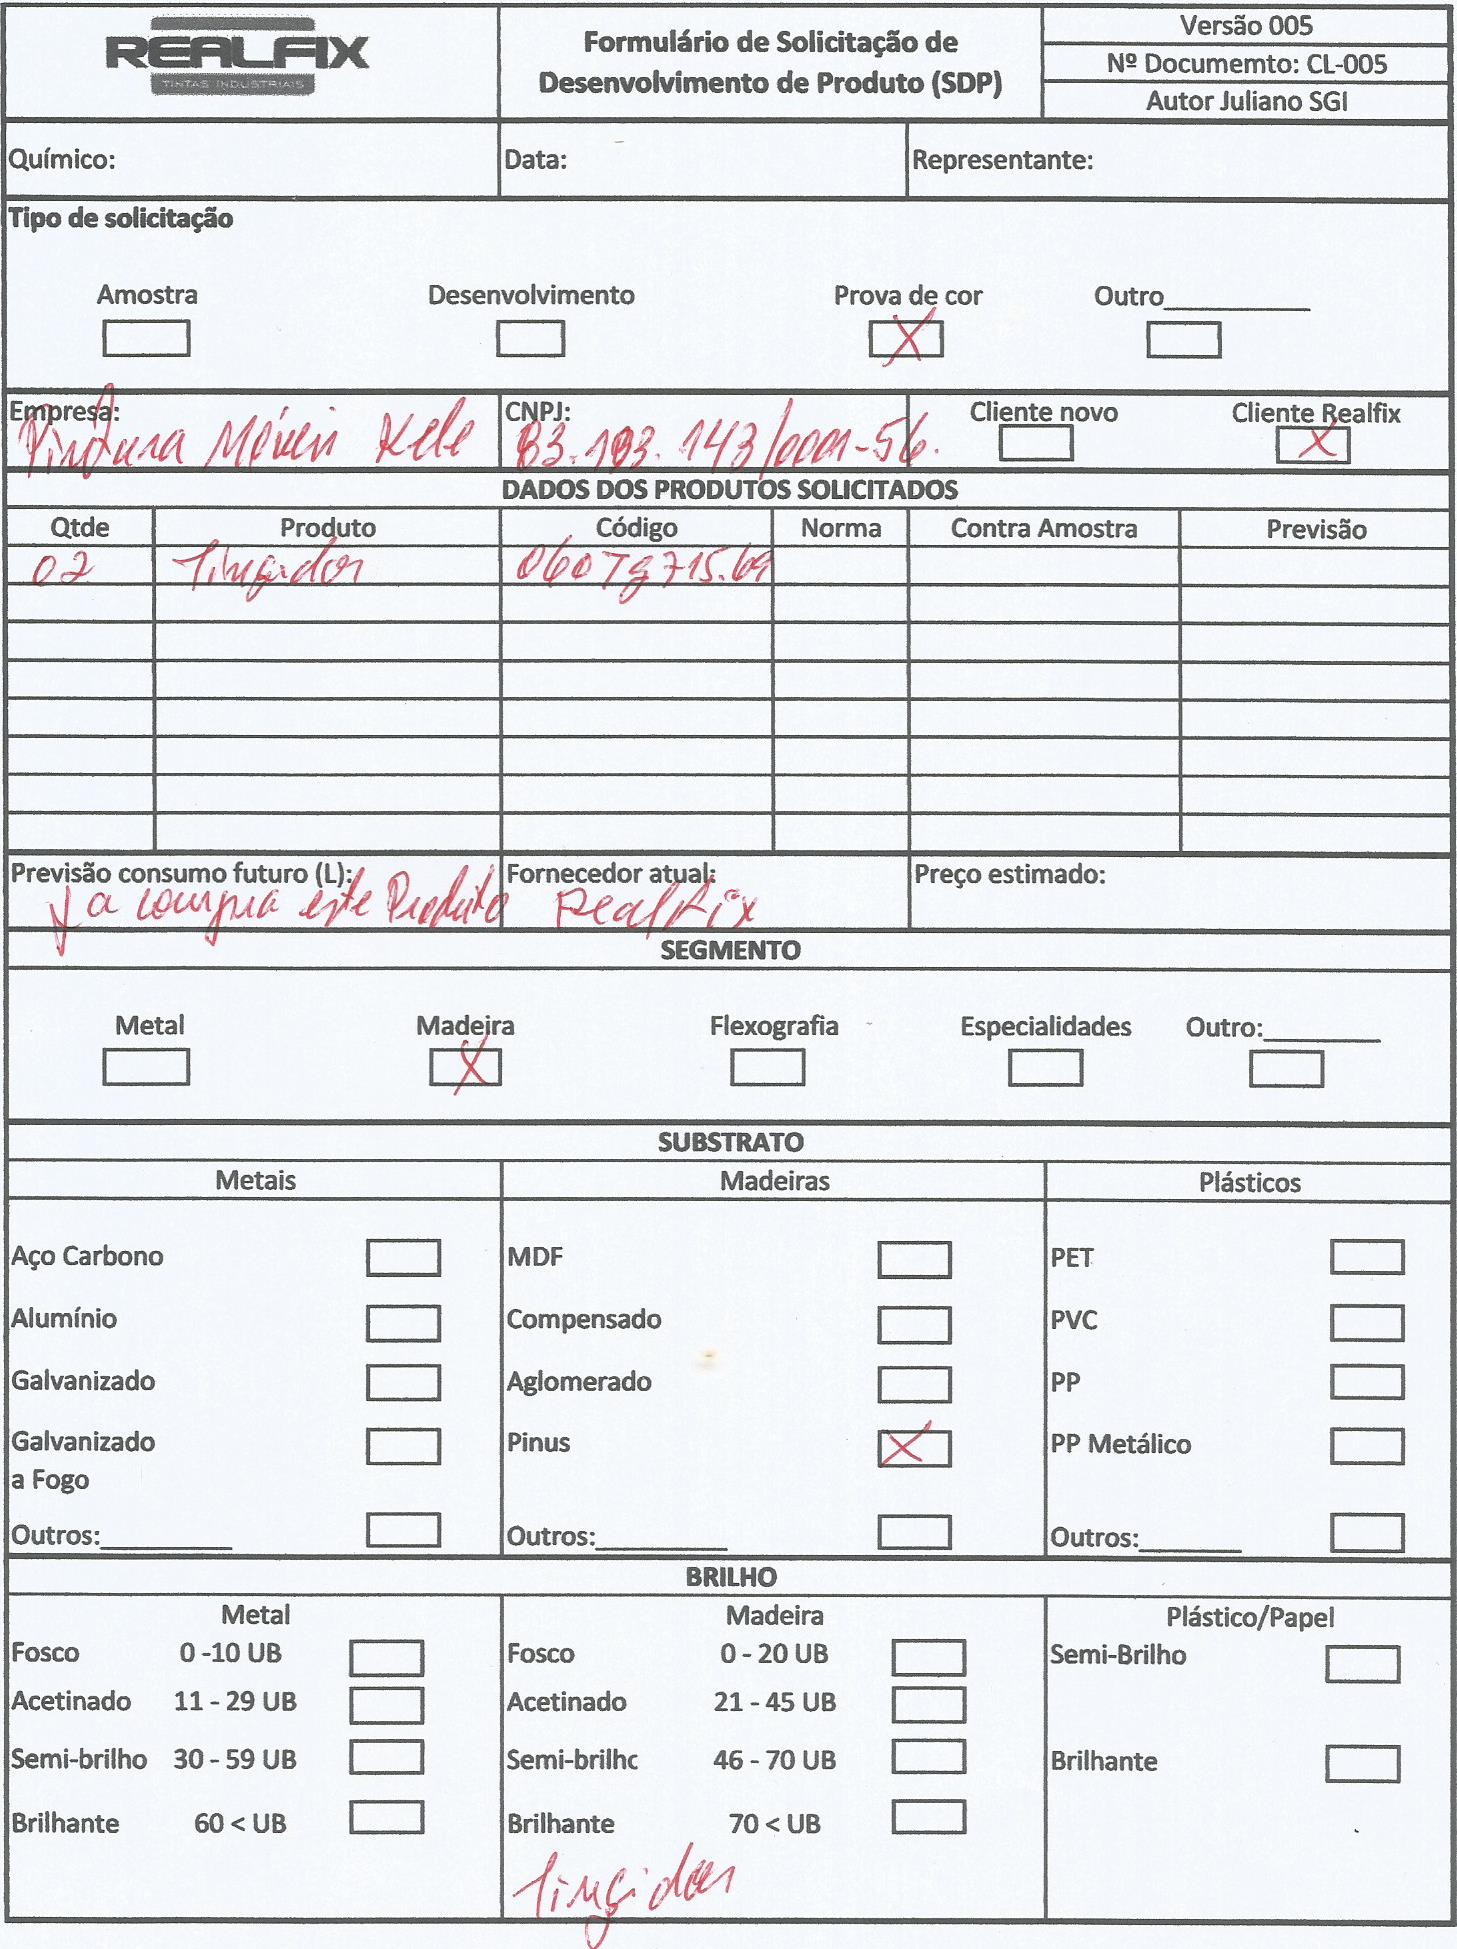 REALFIX
TINTAS INDUSTRIAIS
Formulário de Solicitação de
Desenvolvimento de Produto (SDP)
Versão 005
Nº Documemto: CL-005
Autor Juliano SGI
Químico: Data: Representante:
Tipo de solicitação
Amostra Desenvolvimento Prova de cor Outro__________
X
Empresa: CNPJ: Cliente novo Cliente Realfix
Pintura Móveis Kele X
DADOS DOS PRODUTOS SOLICITADOS
Qtde Produto Código Norma Contra Amostra Previsão
02 Tingidor 060Tg715.69
Previsão consumo futuro (L): Fornecedor atual: Preço estimado:
Ja compra este Produto RealFix
SEGMENTO
Metal Madeira Flexografia Especialidades Outro:________
X
SUBSTRATO
Metais Madeiras Plásticos
Aço Carbono MDF PET
Alumínio Compensado PVC
Galvanizado Aglomerado PP
Galvanizado Pinus X PP Metálico
a Fogo
Outros:_________ Outros:_________ Outros:_______
BRILHO
Metal Madeira Plástico/Papel
Fosco 0 -10 UB Fosco 0 - 20 UB Semi-Brilho
Acetinado 11 - 29 UB Acetinado 21 - 45 UB
Semi-brilho 30 - 59 UB Semi-brilhc 46 - 70 UB Brilhante
Brilhante 60 < UB Brilhante 70 < UB
Tingidor